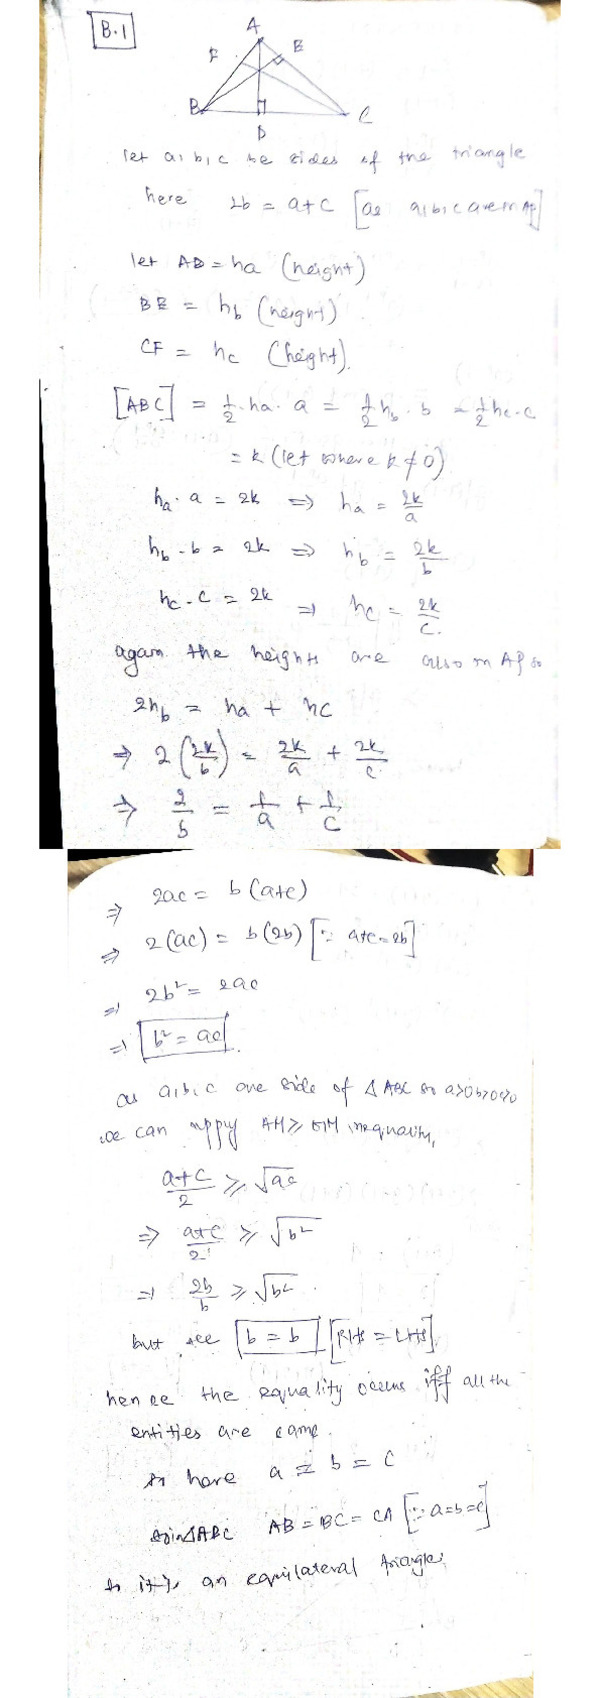 B.1
A
F
E
B
C
D
let a, b, c be sides of the triangle
here 2b = a+c [as a, b, c are in AP]
let AD = ha (height)
BE = hb (height)
CF = hc (height).
[ABC] = 1/2 · ha · a = 1/2 hb · b = 1/2 hc · c
= k (let where k ≠ 0)
ha · a = 2k ⇒ ha = 2k/a
hb · b = 2k ⇒ hb = 2k/b
hc · c = 2k ⇒ hc = 2k/c.
again the heights are also in AP so
2hb = ha + hc
⇒ 2 (2k/b) = 2k/a + 2k/c
⇒ 2/b = 1/a + 1/c
⇒ 2ac = b(a+c)
⇒ 2(ac) = b(2b) [∵ a+c=2b]
⇒ 2b² = 2ac
⇒ b² = ac.
as a, b, c are side of △ABC so a>0 b>0 c>0
we can appy AM ≥ GM inequality,
a+c/2 ≥ √ac
⇒ a+c/2 ≥ √b²
⇒ 2b/b ≥ √b².
but see b = b [RHS = LHS]
hence the equality occurs iff all the
entities are same.
so here a = b = c
so in △ABC AB = BC = CA [∵ a=b=c]
so it is an equilateral triangle.